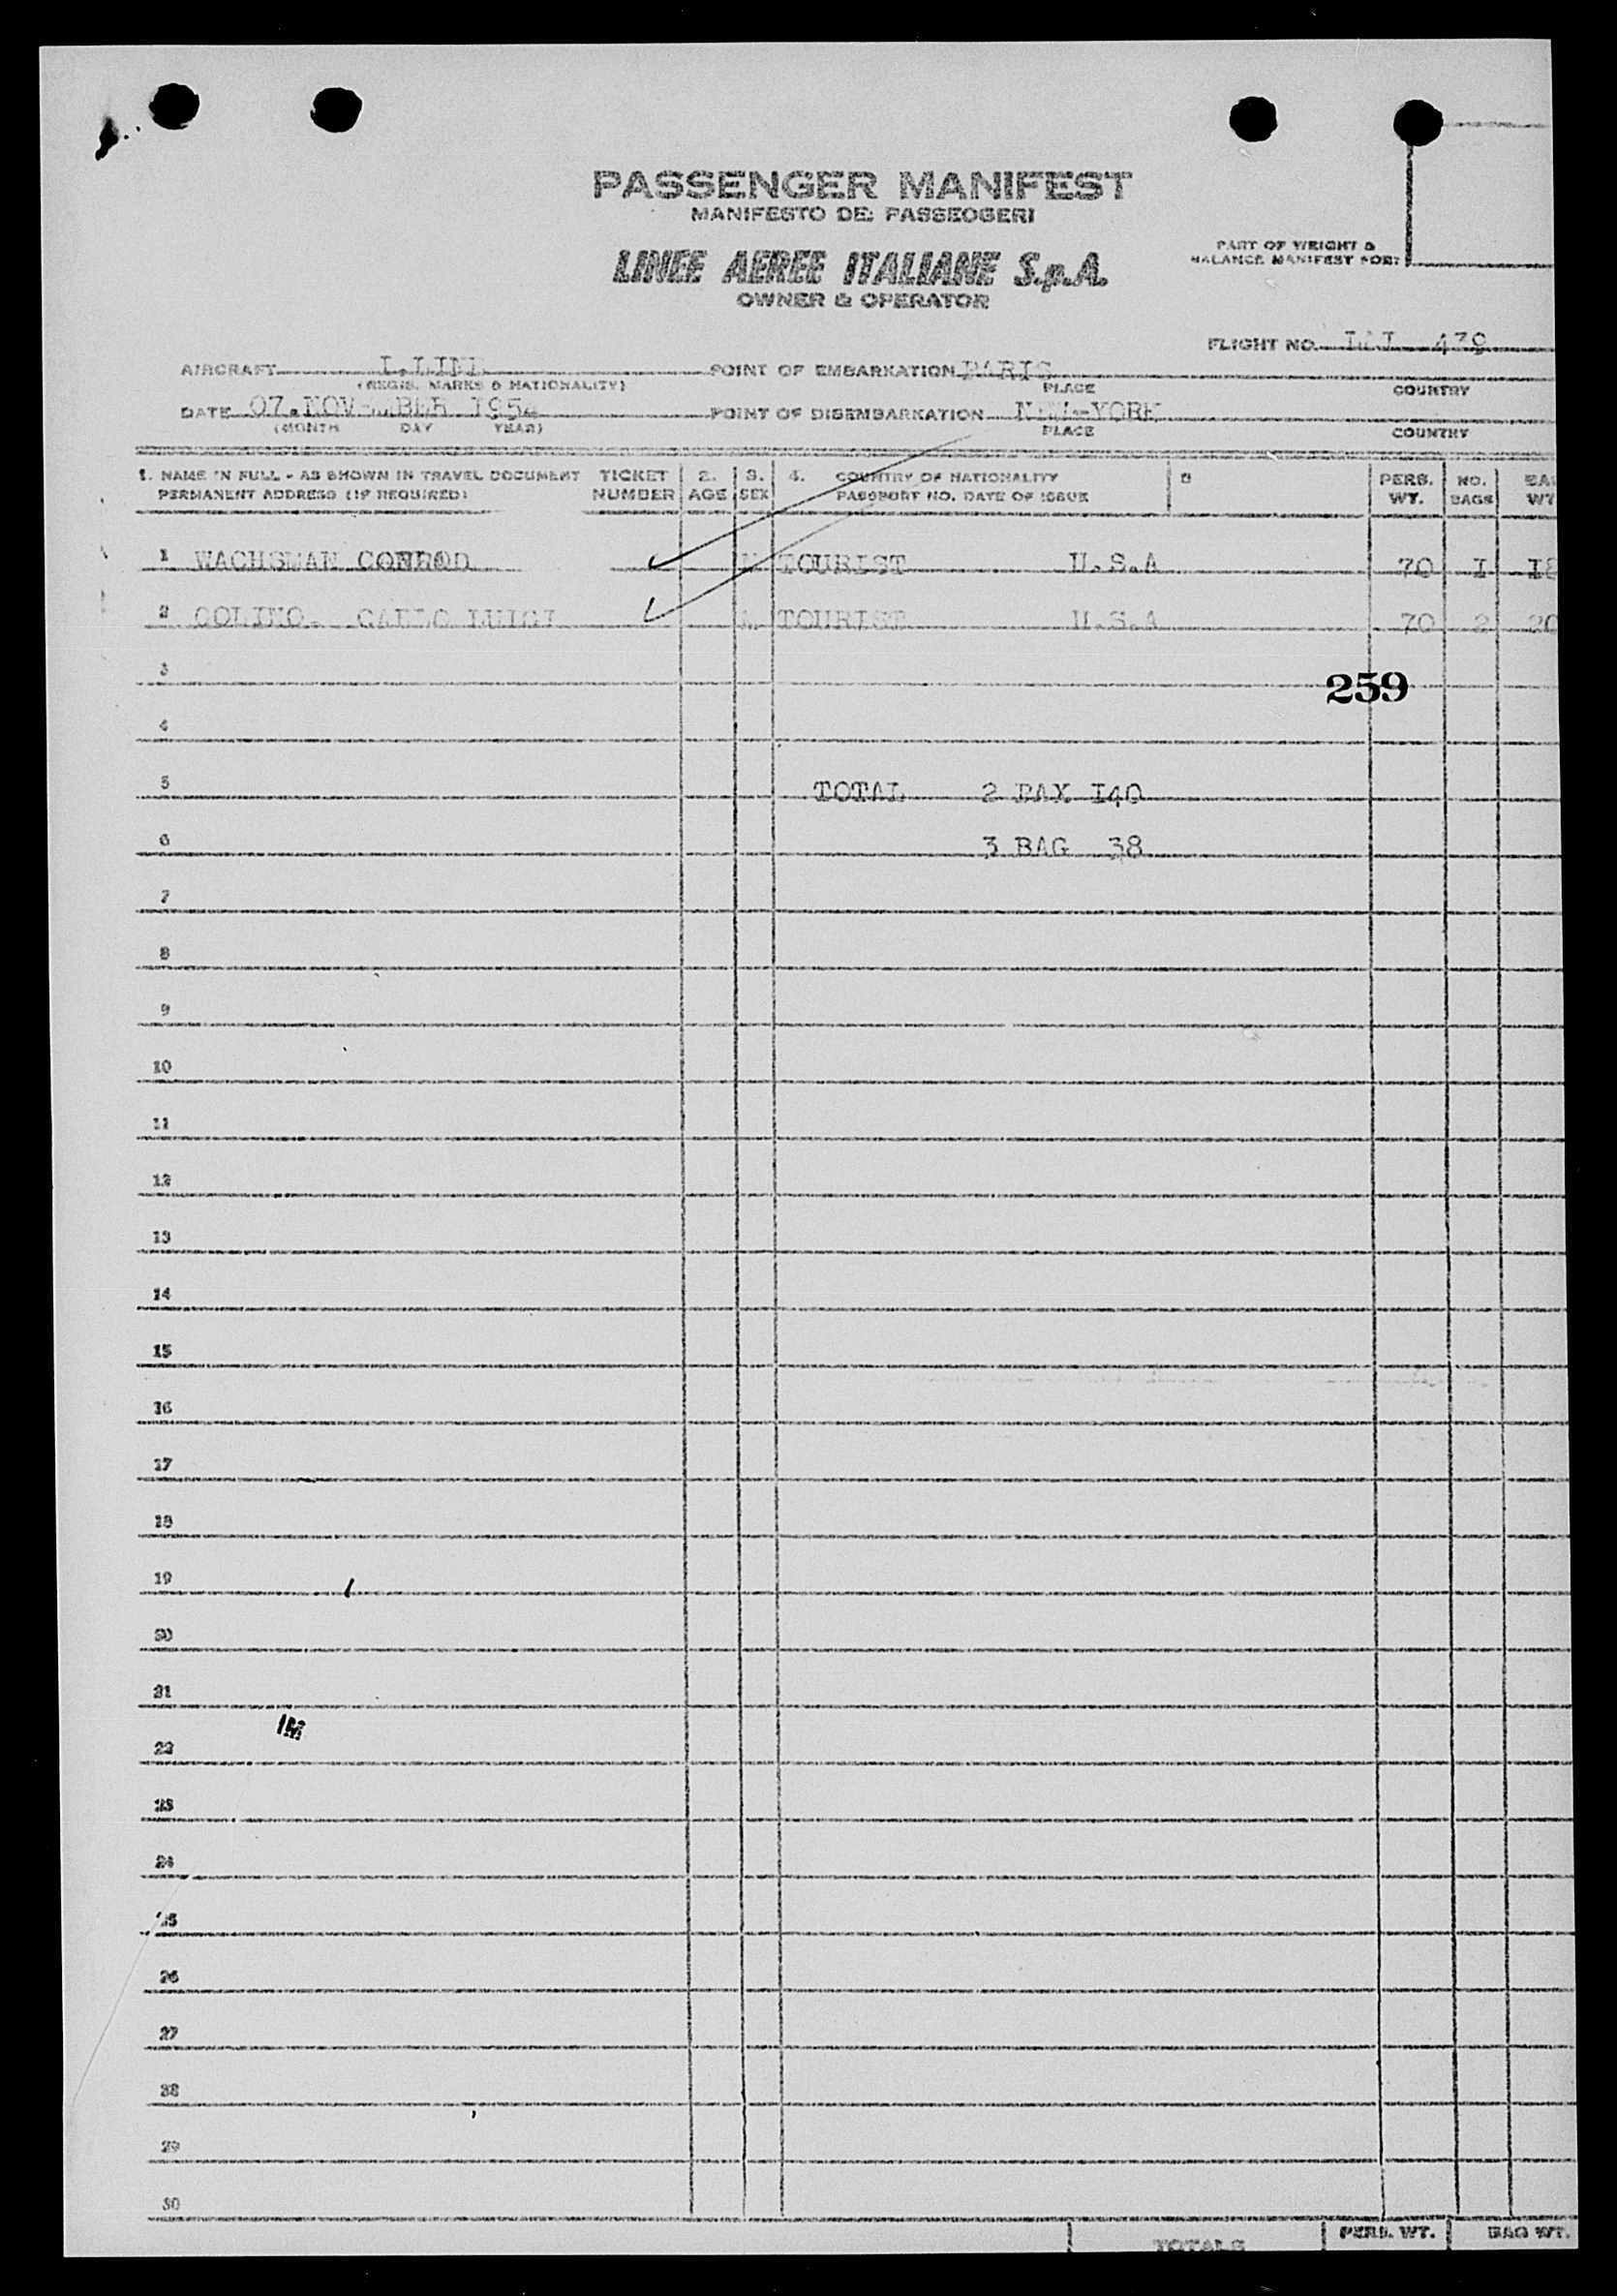 PASSENGER MANIFEST
MANIFESTO DEI PASSEGGERI
LINEE AEREE ITALIANE S.p.A.
OWNER & OPERATOR
PART OF WEIGHT &
BALANCE MANIFEST FOR:
FLIGHT NO. LAI 479
AIRCRAFT POINT OF EMBARKATION PARIS
(REGIS. MARKS & NATIONALITY) PLACE COUNTRY
DATE 07.NOVEMBER 1954 POINT OF DISEMBARKATION NEW-YORK
(MONTH DAY YEAR) PLACE COUNTRY
1. NAME IN FULL - AS SHOWN IN TRAVEL DOCUMENT TICKET 2. 3. 4. COUNTRY OF NATIONALITY 5 PERS. NO. BAG
PERMANENT ADDRESS (IF REQUIRED) NUMBER AGE SEX PASSPORT NO. DATE OF ISSUE WT. BAGS WT
1 WACHSMAN CONRAD M TOURIST U.S.A 70 I I8
2 GOLINO- CARLO LUIGI M TOURIST U.S.A 70 2 20
3 259
4
5 TOTAL 2 PAX I40
6 3 BAG 38
7
8
9
10
11
12
13
14
15
16
17
18
19
20
21
22
23
24
25
26
27
28
29
30
TOTALS PERS. WT. BAG WT.